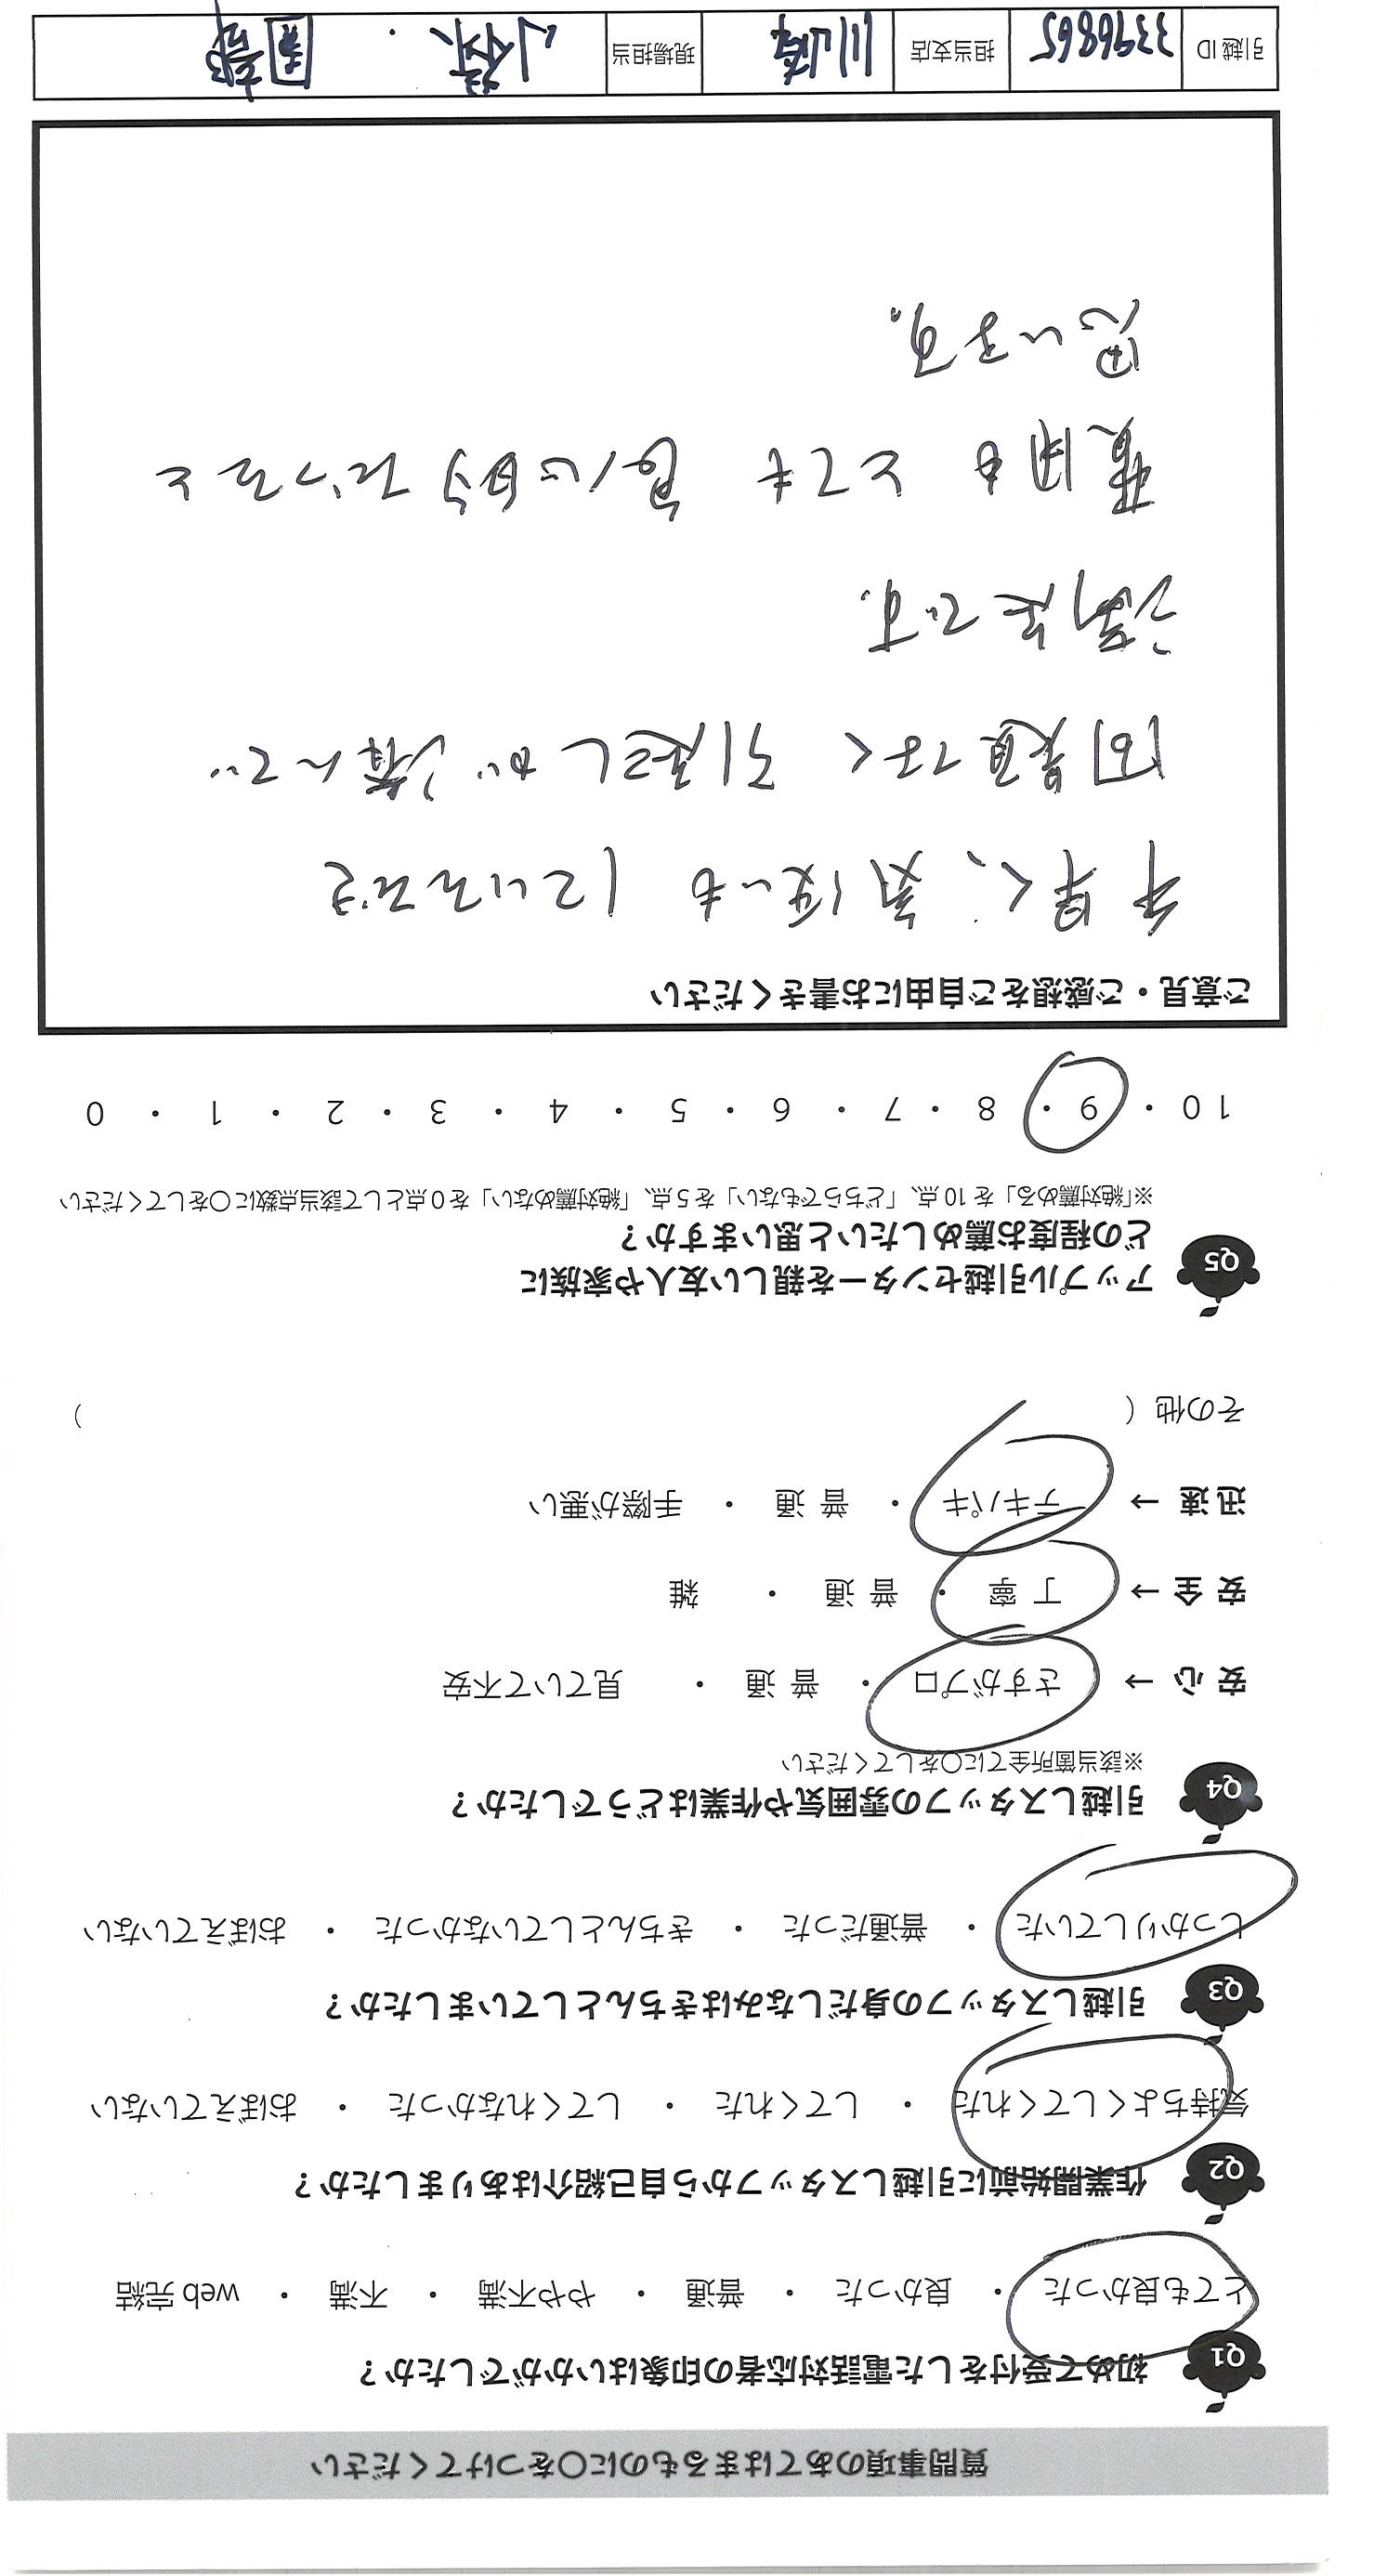 質問事項のあてはまるものに〇をつけてください
Q1 初めて受付をした電話対応者の印象はいかがでしたか?
とても良かった ・ 良かった ・ 普通 ・ やや不満 ・ 不満 ・ web 完結
Q2 作業開始前に引越しスタッフから自己紹介はありましたか?
気持ちよくしてくれた ・ してくれた ・ してくれなかった ・ おぼえていない
Q3 引越しスタッフの身だしなみはきちんとしていましたか?
しっかりしていた ・ 普通だった ・ きちんとしていなかった ・ おぼえていない
Q4 引越しスタッフの雰囲気や作業はどうでしたか?
※該当箇所全てに〇をしてください
安 心 → さすがプロ ・ 普 通 ・ 見ていて不安
安 全 → 丁 寧 ・ 普 通 ・ 雑
迅 速 → テキパキ ・ 普 通 ・ 手際が悪い
その他 ( )
Q5 アップル引越センターを親しい友人や家族に
どの程度お薦めしたいと思いますか?
※「絶対薦める」を 10 点、「どちらでもない」を 5 点、「絶対薦めない」を 0 点として該当点数に〇をしてください
10 ・ 9 ・ 8 ・ 7 ・ 6 ・ 5 ・ 4 ・ 3 ・ 2 ・ 1 ・ 0
ご意見・ご感想をご自由にお書きください
手早く、気使いもしていただき
問題なく引越しが済んで
満足です。
費用もとても良心的だったと
思います。
引越 ID 3396865 担当支店 川崎 現場担当 小林 ・ 園部